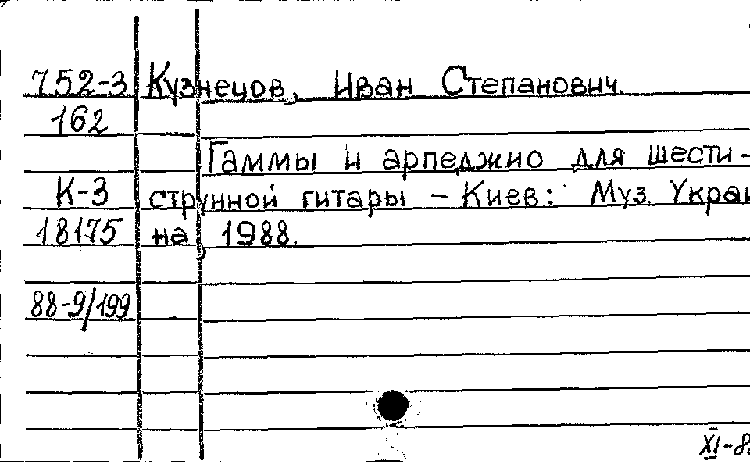 752-3 Кузнецов, Иван Степанович.
162
Гаммы и арпеджио для шести-
К-3 струнной гитары - Киев: Муз. Украи
18175 на, 1988.
88-9/199
XI-8